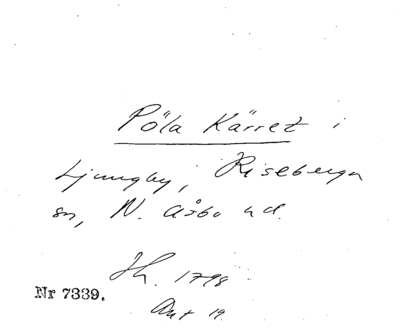 Pöla Kärret i
Ljungby, Riseberga
sn, N. Åsbo hd.
Jh. 1798
Nr 7339.
Akt 19.